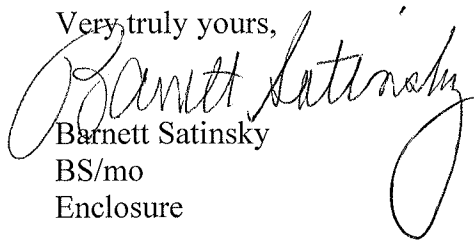 Very truly yours,
Barnett Satinsky
Barnett Satinsky
BS/mo
Enclosure